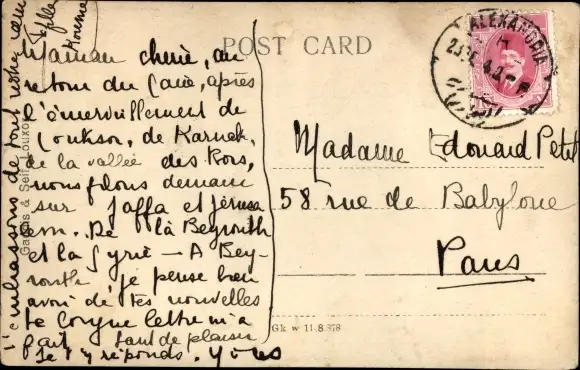 POST CARD
ALEXANDRIA
Maman chérie, au
retour du Caire, après
l'émerveillement de
Louksor, de Karnak,
de la vallée des Rois,
nous filons demain
sur Jaffa et Jérusa
lem. De là Beyrouth
et la Syrie — A Bey-
routh je pense bien
avoir de tes nouvelles
Ta longue lettre m'a
fait tant de plaisir
Je t'y réponds. Yves
t'embrassons de tout notre cœur
Madame Edouard Petit
58 rue de Babylone
Paris
Gaddis & Seif, Louxor
Gk w 11.8.378